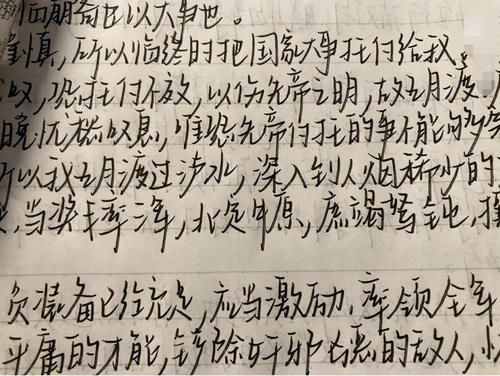 临崩寄臣以大事也。
谨慎，所以临终时把国家大事托付给我。
叹，恐托付不效，以伤先帝之明，故五月渡
晚忧愁叹息，唯恐先帝付托的事不能
所以我五月渡过泸水，深入到人烟稀少的
，当奖率三军，北定中原，庶竭驽钝，攘
员装备已经充足，应当激励、率领全军
平庸的才能，铲除奸邪凶恶的敌人，